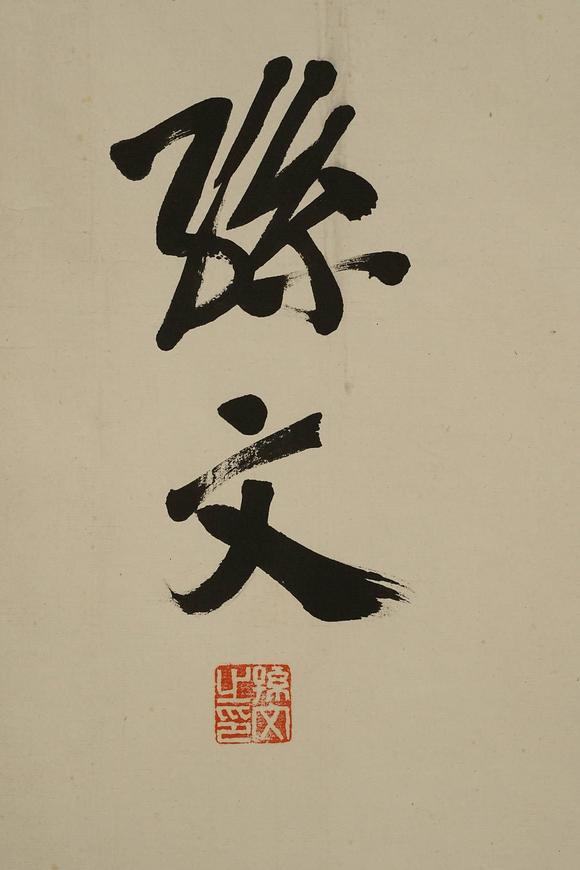 孫文
孫文之印